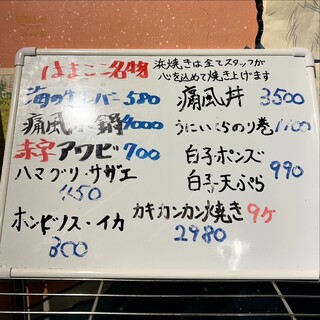 はまここ名物
浜焼きは全てスタッフが
心を込めて焼き上げます
580
痛風鍋 4000
赤字アワビ 700
ハマグリ・サザエ
450
ホンビノス・イカ
300
痛風丼 3500
うにいくらのり巻 1100
白子ポンズ
白子天ぷら
990
カキカンカン焼き 9ケ
2980